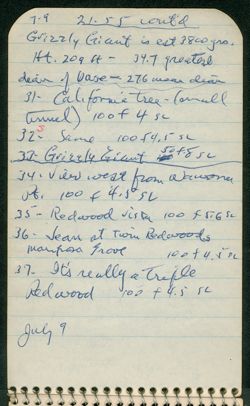 7-9 21-55 cont'd
Grizzly Giant is est 3800 yrs.
Ht. 209 ft - 34.7 greatest
diam of base - 27.6 mean diam
31- California tree - (small
tunnel) 100 f 4 SL
32- Same 100 f 4.5 SL
33- Grizzly Giant 50 f 8 SL
34. View west from Wawona
pt. 100 f 4.5 SL
35- Redwood Vista 100 f 5.6 SL
36- Jean at twin Redwoods
Mariposa Grove 100 f 4.5 SL
37. It's really a triple
Redwood 100 f 4.5 SL
July 9